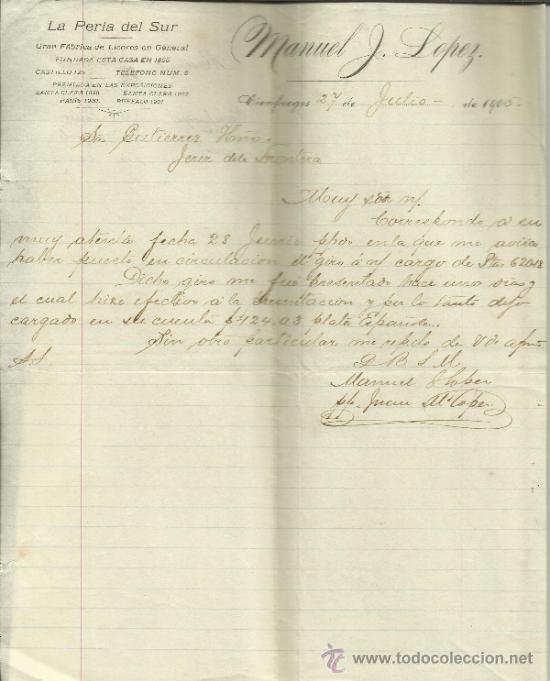 La Perla del Sur
Gran Fábrica de Licores en General
FUNDADA ESTA CASA EN 1860
CASTILLO TELEFONO NUM. 6
PREMIADA EN LAS EXPOSICIONES
SANTA CLARA SANTA CLARA
PARIS 1900. BUFFALO 1901
Manuel J. Lopez.
Cienfuegos 27 de Julio de 1905.
Sres Gutierrez Hños.
Jerez de la Frontera
Muy Sres n/.
Correspondo a su
muy atenta fecha 28 Junio ppdo. en la que me avisa
haber puesto en circulacion el giro á m/ cargo de Ptas
Dicho giro me fue presentado hace unos dias y
el cual hice efectivo á la presentacion y por lo tanto dejo
cargado en su cuenta $ 124.03 plata Española.
Sin otro particular me repito de V de afmo
S.S.
Q B S M
Manuel J Lopez
pp. Juan Mª Lopez
www.todocoleccion.net
todocoleccion